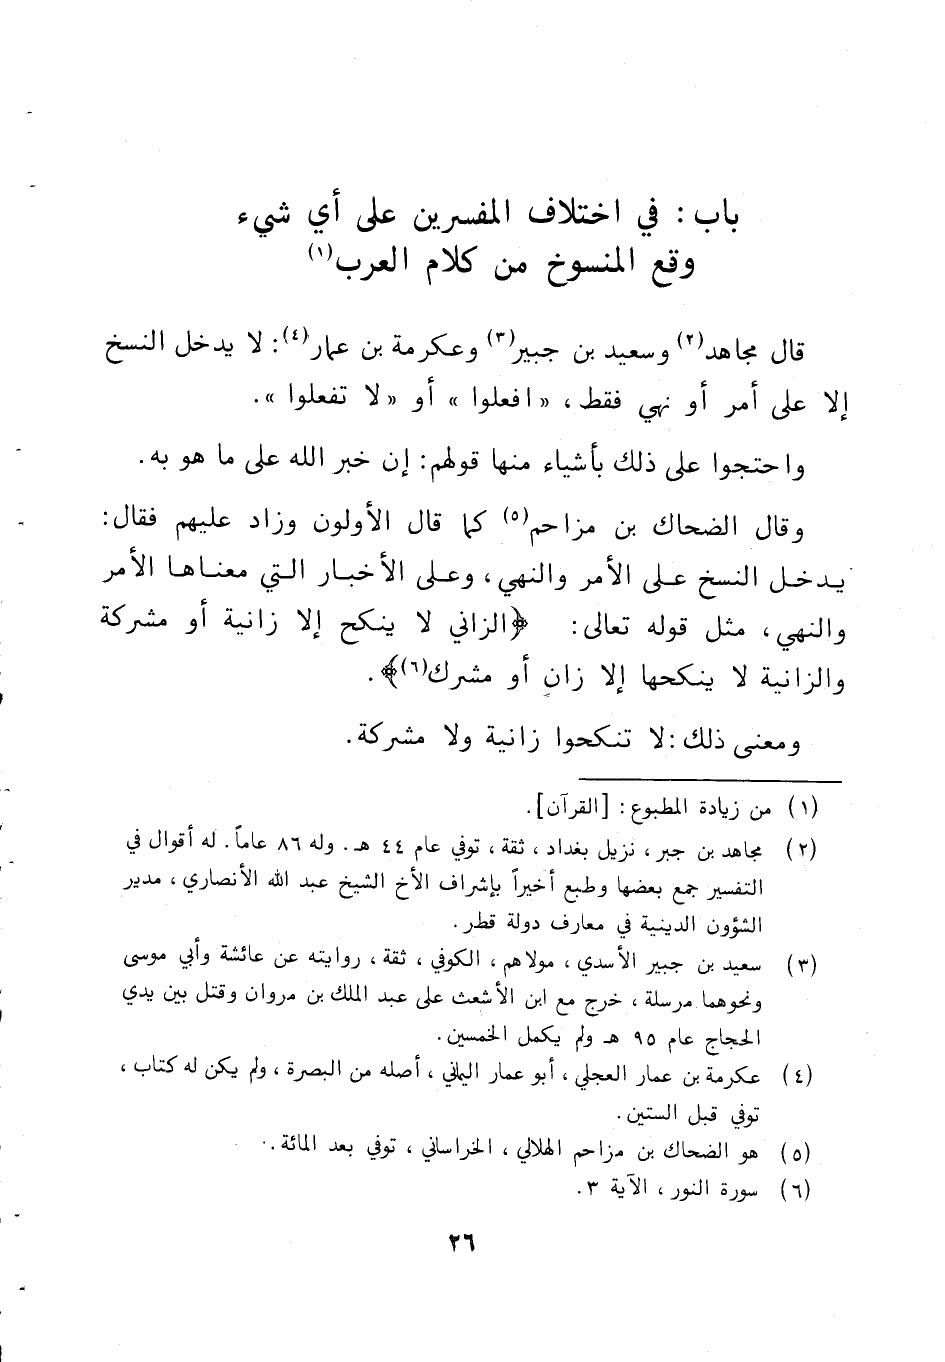 باب : في اختلاف المفسرين على أي شيء
وقع المنسوخ من كلام العرب(١)
قال مجاهد(٢) وسعيد بن جبير(٣) وعكرمة بن عمار(٤): لا يدخل النسخ
إلا على أمر أو نهي فقط ، « افعلوا » أو « لا تفعلوا ».
واحتجوا على ذلك بأشياء منها قولهم: إن خبر الله على ما هو به.
وقال الضحاك بن مزاحم(٥) كما قال الأولون وزاد عليهم فقال:
يدخل النسخ على الأمر والنهي، وعلى الأخبار التي معناها الأمر
والنهي، مثل قوله تعالى: ﴿الزاني لا ينكح إلا زانية أو مشركة
والزانية لا ينكحها إلا زانٍ أو مشرك(٦)﴾.
ومعنى ذلك :لا تنكحوا زانية ولا مشركة.
(١) من زيادة المطبوع : [القرآن] .
(٢) مجاهد بن جبر ، نزيل بغداد ، ثقة ، توفي عام ٤٤ هـ. وله ٨٦ عاماً. له أقوال في
التفسير جمع بعضها وطبع أخيراً بإشراف الأخ الشيخ عبد الله الأنصاري ، مدير
الشؤون الدينية في معارف دولة قطر .
(٣) سعيد بن جبير الأسدي ، مولاهم ، الكوفي ، ثقة ، روايته عن عائشة وأبي موسى
ونحوهما مرسلة ، خرج مع ابن الأشعث على عبد الملك بن مروان وقتل بين يدي
الحجاج عام ٩٥ هـ ولم يكمل الخمسين .
(٤) عكرمة بن عمار العجلي ، أبو عمار اليماني ، أصله من البصرة ، ولم يكن له كتاب ،
توفي قبل الستين .
(٥) هو الضحاك بن مزاحم الهلالي ، الخراساني ، توفي بعد المائة .
(٦) سورة النور ، الآية ٣.
٢٦